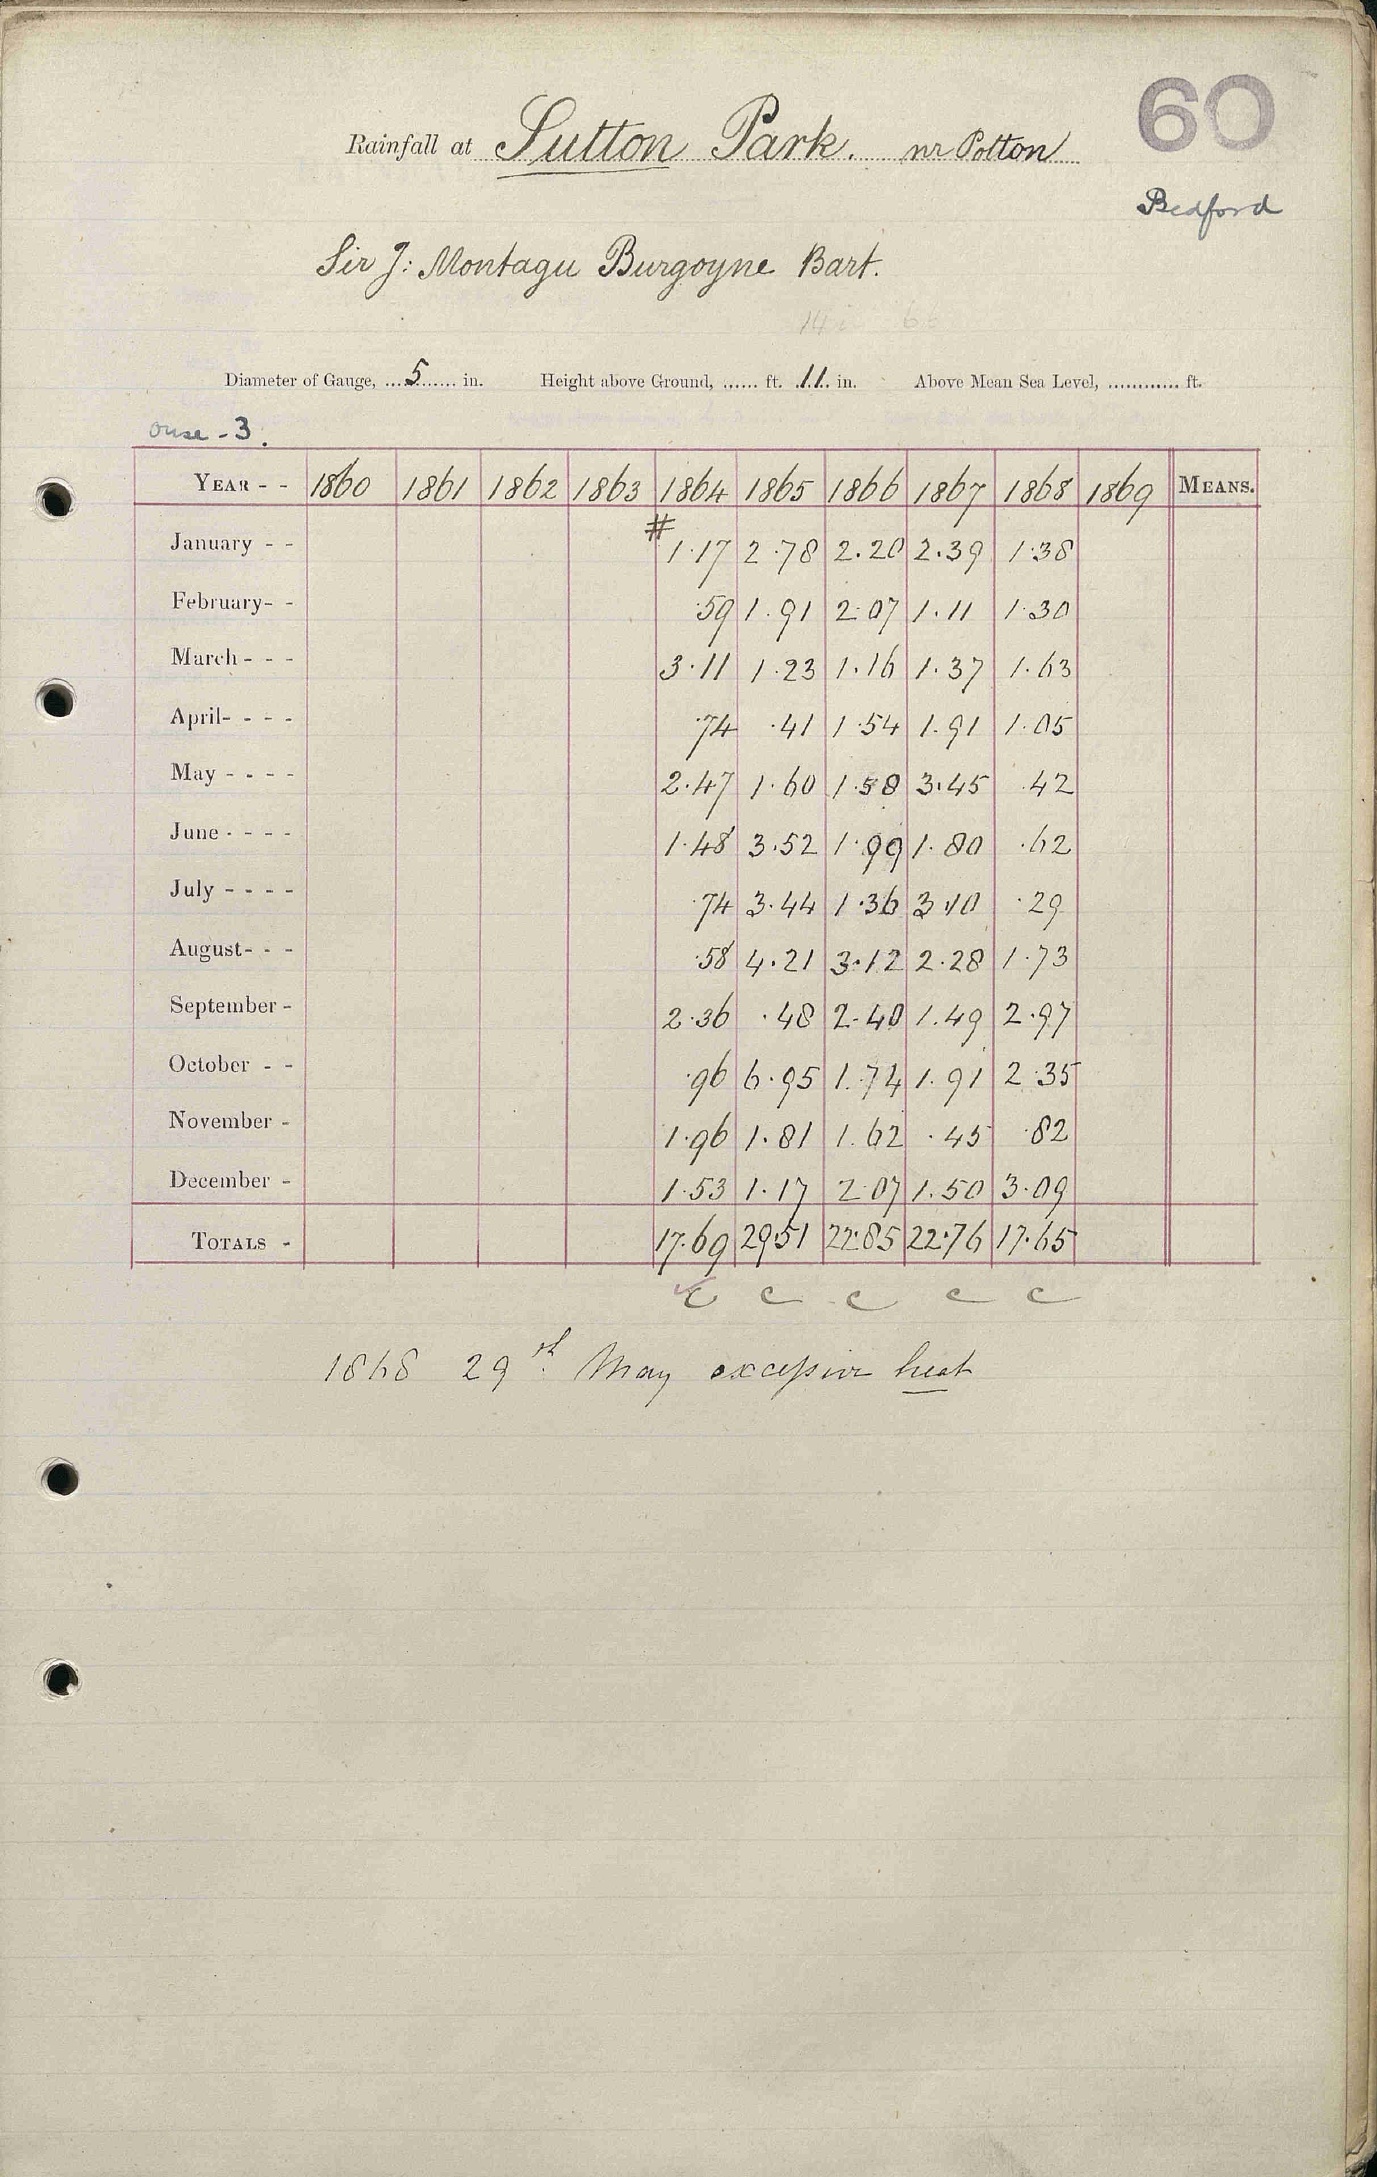 60
Rainfall at Sutton Park. nr Potton
Bedford
Sir J: Montagu Burgoyne Bart.
Diameter of Gauge, ...5...... in. Height above Ground, ...... ft. 11 in. Above Mean Sea Level, ............ ft.
Ouse - 3.
YEAR - - 1860 1861 1862 1863 1864 1865 1866 1867 1868 1869 MEANS.
#
January - - 1.17 2.78 2.20 2.39 1.38
February- - .59 1.91 2.07 1.11 1.30
March - - - 3.11 1.23 1.16 1.37 1.63
April- - - - .74 .41 1.54 1.91 1.05
May - - - - 2.47 1.60 1.58 3.45 .42
June - - - - 1.48 3.52 1.99 1.80 .62
July - - - - .74 3.44 1.36 3.10 .29
August- - - .58 4.21 3.12 2.28 1.73
September - 2.36 .48 2.40 1.49 2.97
October - - .96 6.95 1.74 1.91 2.35
November - 1.96 1.81 1.62 .45 .82
December - 1.53 1.17 2.07 1.50 3.09
TOTALS - 17.69 29.51 22.85 22.76 17.65
c c c c c
1868 29th May excessive heat